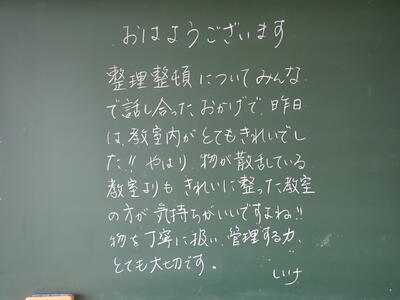 おはようございます
整理整頓についてみんな
で話し合ったおかげで、昨日
は、教室内がとてもきれいでし
た!! やはり、物が散乱している
教室よりもきれいに整った教室
の方が気持ちがいいですよね!!
物を丁寧に扱い、管理する力、
とても大切です。